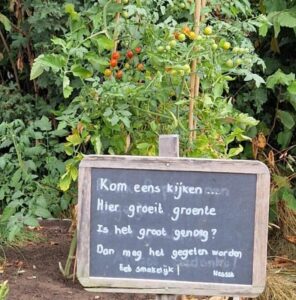 Kom eens kijken...
Hier groeit groente
Is het groot genoeg?
Dan mag het gegeten worden
Eet smakelijk!